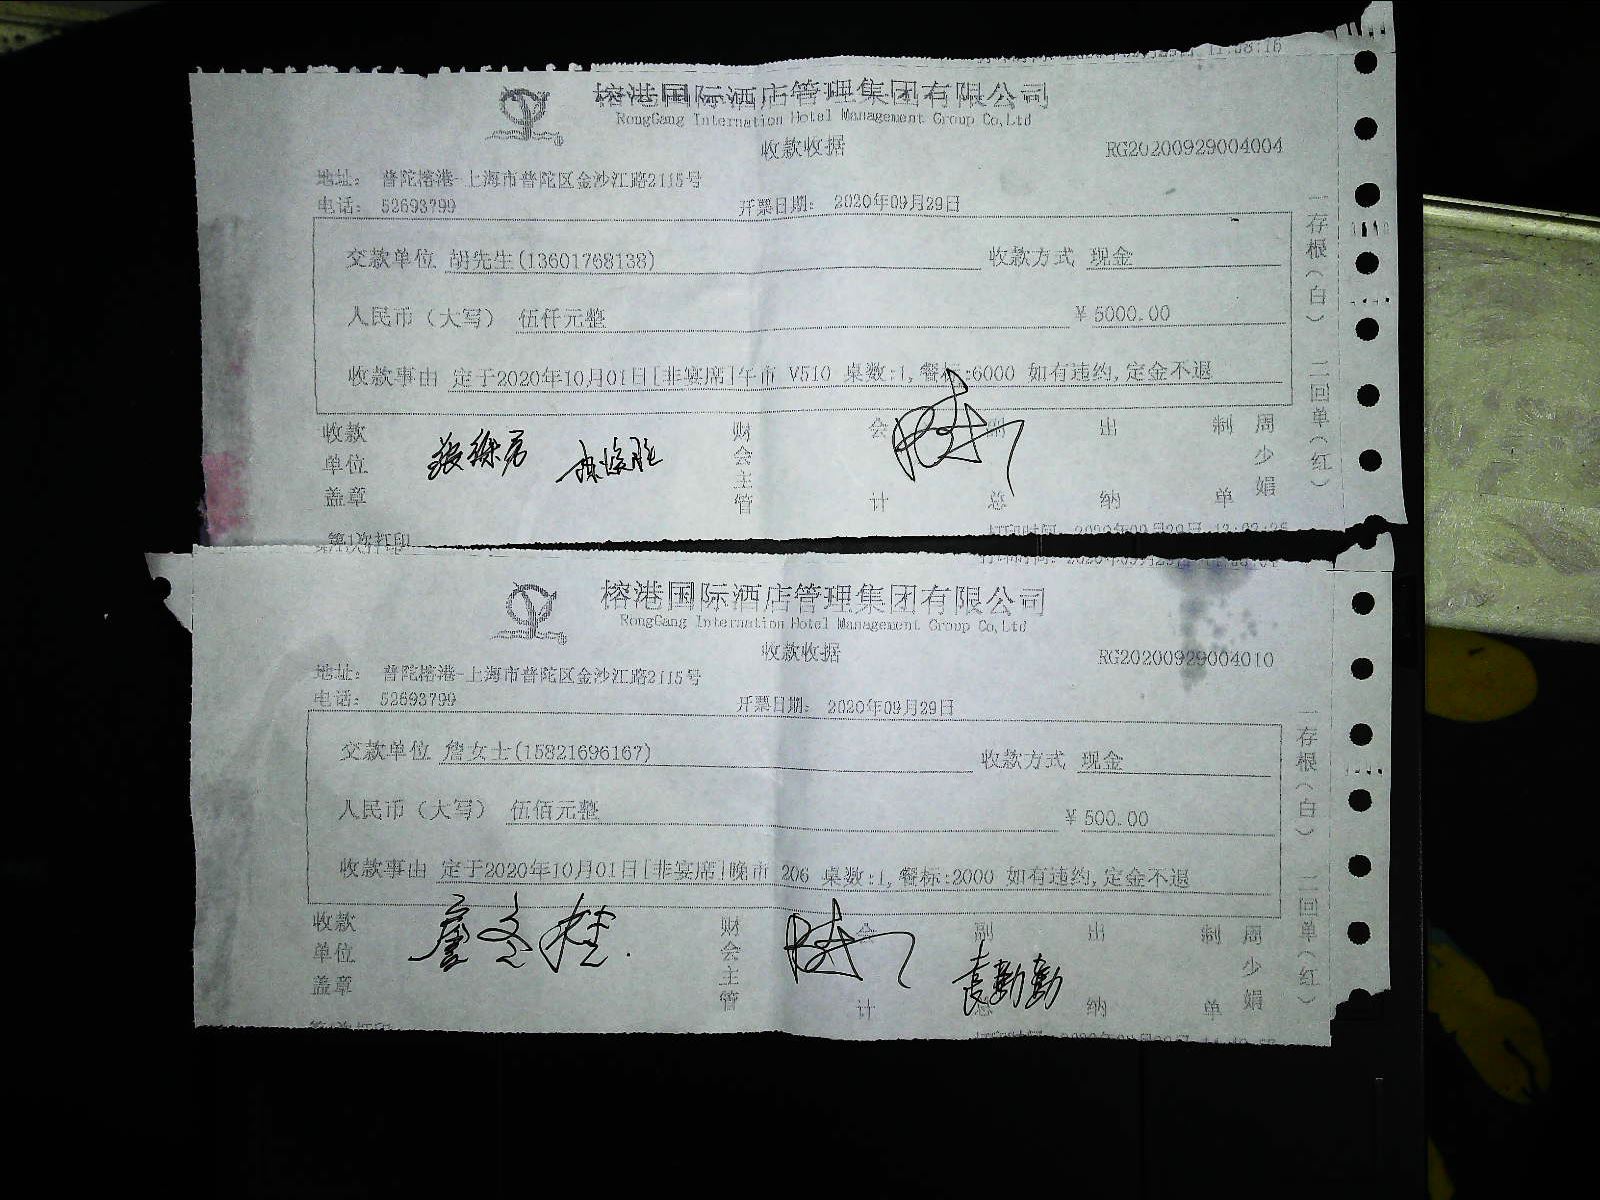 11:58:16
榕港国际酒店管理集团有限公司
RongGang Internation Hotel Management Group Co,Ltd
收款收据
RG20200929004004
地址: 普陀榕港-上海市普陀区金沙江路2115号
电话: 52693799 开票日期: 2020年09月29日
交款单位 胡先生(13601768138) 收款方式 现金
人民币(大写) 伍仟元整 ¥5000.00
收款事由 定于2020年10月01日[非宴席]午市 V510 桌数:1,餐标:6000 如有违约,定金不退
收款单位盖章 财会主管 会计 副总 出纳 制单 周少娟
一存根(白) 二回单(红)
第1次打印
榕港国际酒店管理集团有限公司
RongGang Internation Hotel Management Group Co,Ltd
收款收据
RG20200929004010
地址: 普陀榕港-上海市普陀区金沙江路2115号
电话: 52693799 开票日期: 2020年09月29日
交款单位 詹女士(15821696167) 收款方式 现金
人民币(大写) 伍佰元整 ¥500.00
收款事由 定于2020年10月01日[非宴席]晚市 206 桌数:1,餐标:2000 如有违约,定金不退
收款单位盖章 财会主管 会计 副总 袁勤勤 出纳 制单 周少娟
一存根(白) 二回单(红)